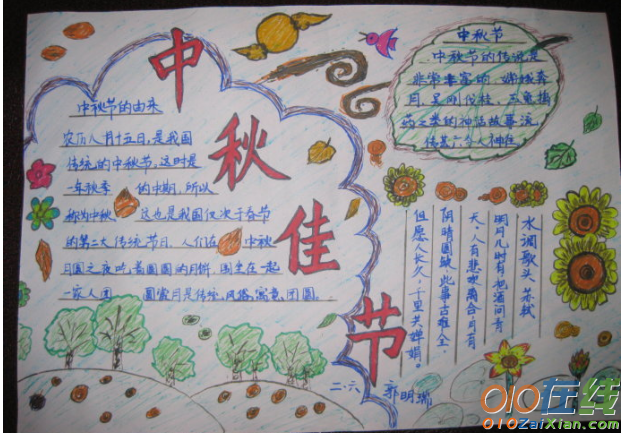 中秋佳节
中秋节的由来
农历八月十五日,是我国
传统的中秋节,这时是
一年秋季 的中期,所以
称为中秋 这也是我国仅次于春节
的第二大传统节日.人们在 中秋
月圆之夜吃着圆圆的月饼.围坐在一起
一家人团 圆赏月是传统.风格.寓意.团圆。
中秋节
中秋节的传说是
非常丰富的,嫦娥奔
月,吴刚伐桂,玉兔捣
药之类的神话故事流
传甚广令人神往
水调歌头 苏轼
明月几时有把酒问青
天,人有悲欢离合月有
阴晴圆缺,此事古难全.
但愿人长久,千里共婵娟。
二.六 郭明瑞
010在线
010ZaiXian.com